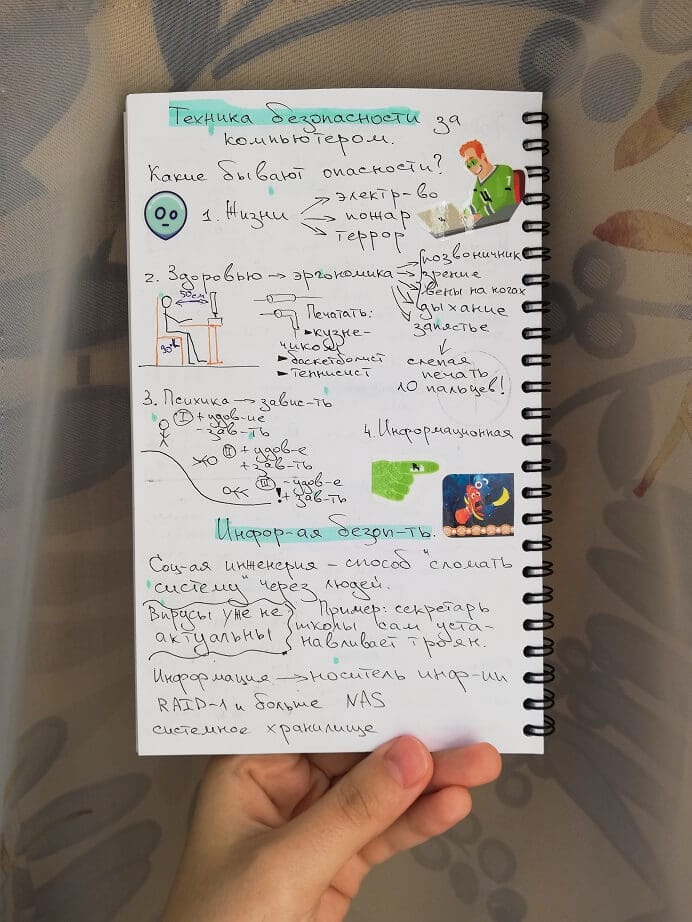 Техника безопасности за
компьютером.
Какие бывают опасности?
1. Жизни → электр-во
→ пожар
→ террор
2. Здоровью → эргономика → позвоничник
зрение
вены на ногах
дыхание
запястье
слепая
печать
10 пальцев!
50см
90°
Печатать:
кузне-
чиком
баскетболист
теннисист
3. Психика → завис-ть
I + удов-ие
- зав-ть
II + удов-е
+ зав-ть
III - удов-е
! + зав-ть
4. Информационная
Инфор-ая безоп-ть.
Соц-ая инженерия – способ "сломать
систему" через людей.
Вирусы уже не
актуальны
Пример: секретарь
школы сам уста-
навливает троян.
Информация → носитель инф-ии
RAID-1 и больше NAS
системное хранилище